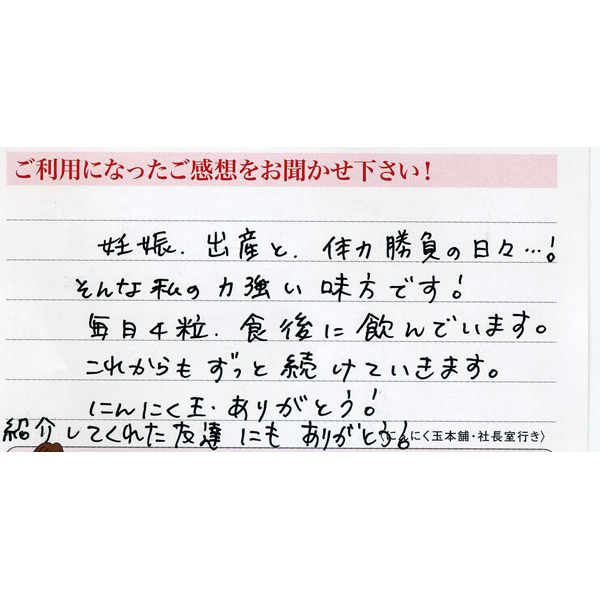 ご利用になったご感想をお聞かせ下さい!
妊娠.出産と.体力勝負の日々…!
そんな私の力強い味方です!
毎日4粒.食後に飲んでいます。
これからもずっと続けていきます。
にんにく玉・ありがとう!
紹介してくれた友達にもありがとう!
〈にんにく玉本舗・社長室行き〉